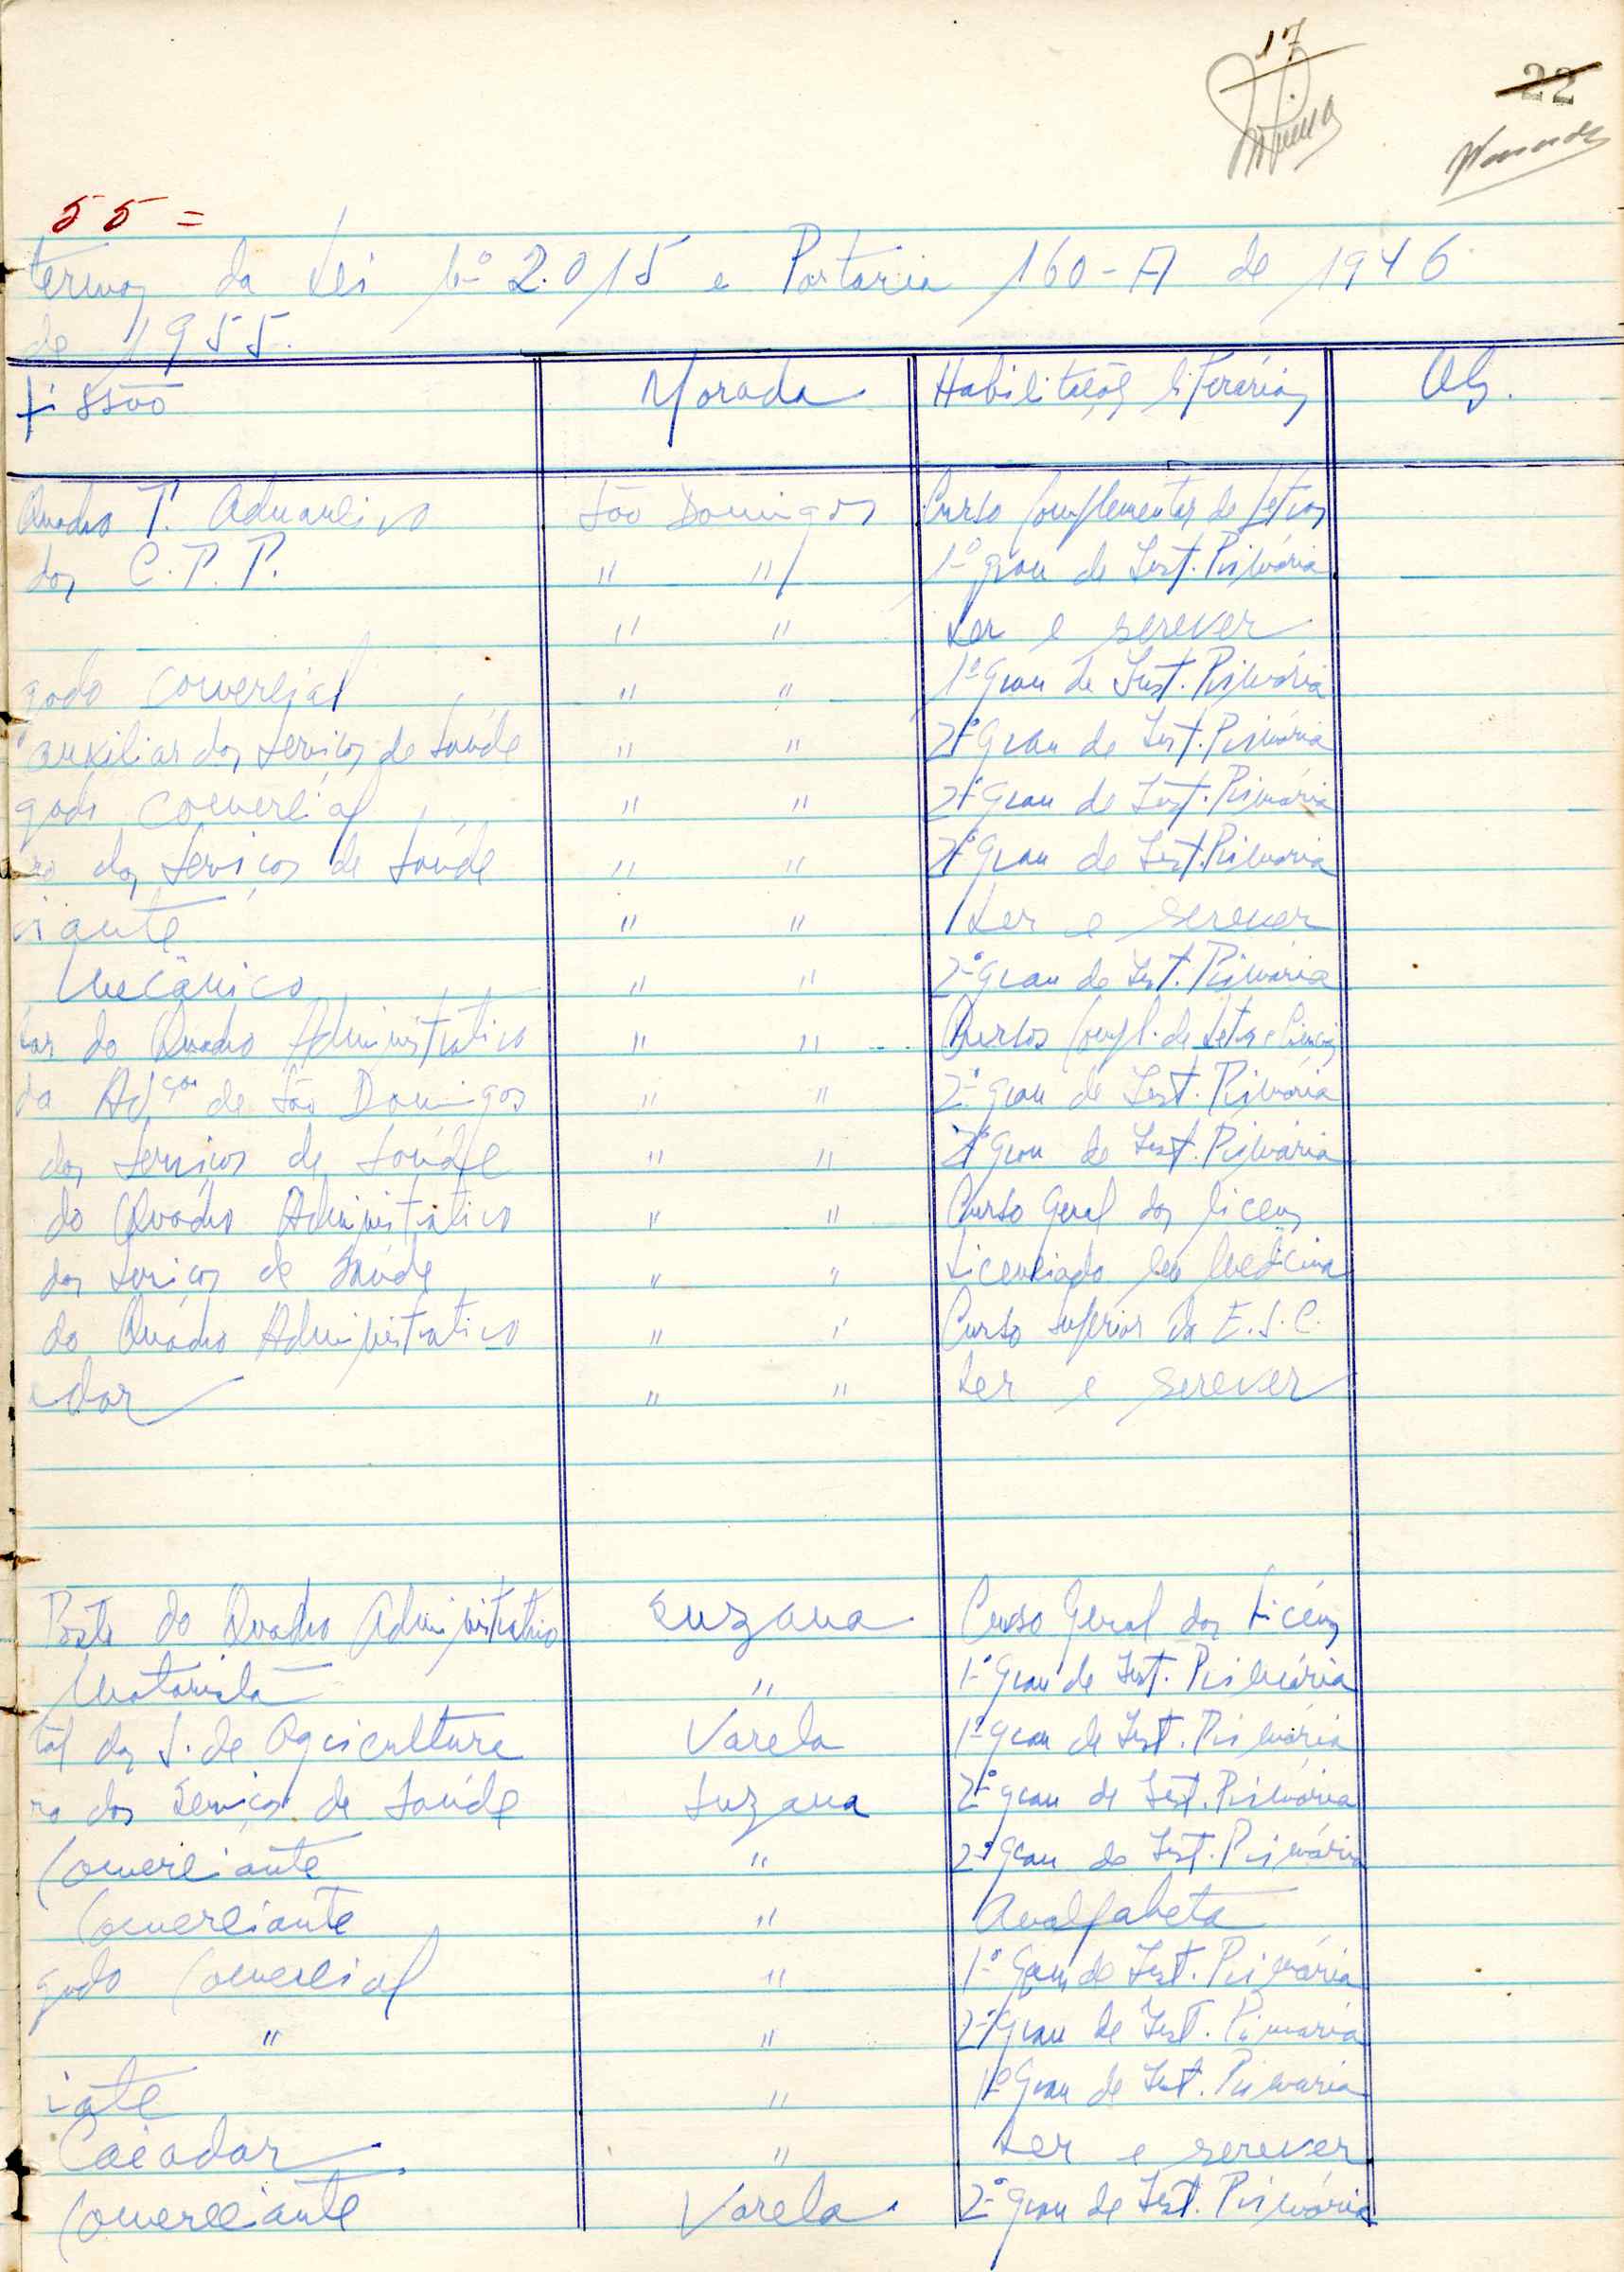 17
22
55 =
termos da Lei nº 2.015 e Portaria 160-A de 1946
de 1955.
fissão Morada Habilitações literárias Obs.
Quadro T. Aduaneiro São Domingos Curso Complementar de Letras
dos C.T.T. " " 1º grau de Inst. Primária
" " Ler e screver
gado comercial " " 1º Grau de Inst. Primária
auxiliar dos Serviços de Saúde " " 2º Grau de Inst. Primária
gado Comercial " " 2º Grau de Inst. Primária
ro dos Serviços de Saúde " " 2º Grau de Inst. Primária
ciante " " Ler e screver
Mecânico " " 2º Grau de Inst. Primária
liar do Quadro Administrativo " " Cursos Compl. de Letras e Ciencias
da Adção de São Domingos " " 2º grau de Inst. Primária
dos Serviços de Saúde " " 2º Grau de Inst. Primária
do Quadro Administrativo " " Curso Geral dos liceus
dos Seriços de Saúde " " Licenciado em Medicina
do Quadro Administrativo " " Curso superior da E.S.C.
ador " " Ler e screver
Posto do Quadro Administrativo Suzana Curso Geral dos Licéus
Motorista " 1º Grau de Inst. Primária
tal dos S. de Agricultura Varela 1º Grau de Inst. Primária
ro dos Serviços de Saúde Suzana 2º grau de Inst. Primária
Comerciante " 2º Grau de Inst. Primária
Comerciante " Analfabeta
gado Comercial " 1º Grau de Inst. Primária
" " 2º Grau de Inst. Primária
iate " 1º Grau de Inst. Primaria
Caçador " Ler e screver
Comerciante Varela 2º grau de Inst. Primária